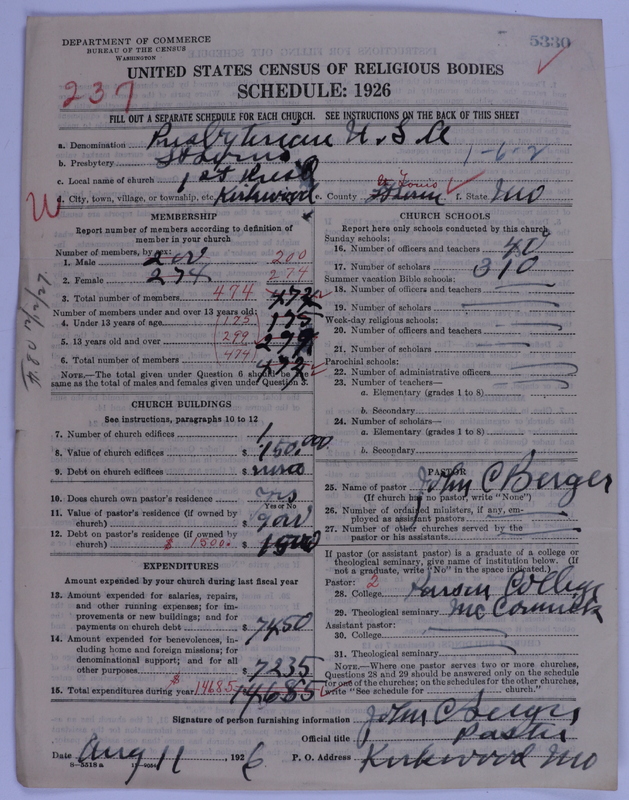 DEPARTMENT OF COMMERCE
BUREAU OF THE CENSUS
WASHINGTON
5330
UNITED STATES CENSUS OF RELIGIOUS BODIES
237
SCHEDULE: 1926
FILL OUT A SEPARATE SCHEDULE FOR EACH CHURCH. SEE INSTRUCTIONS ON THE BACK OF THIS SHEET
a. Denomination Presbyterian U.S.A
b. Presbytery St Louis 1-6-2
c. Local name of church 1st Pres
d. City, town, village, or township, etc. Kirkwood e. County St Louis f. State Mo
MEMBERSHIP
Report number of members according to definition of
member in your church
Number of members, by sex:
1. Male 200 200
2. Female 274 274
3. Total number of members 474
Number of members under and over 13 years old:
4. Under 13 years of age 175 175
5. 13 years old and over 299
6. Total number of members 474
NOTE.—The total given under Question 6 should be the
same as the total of males and females given under Question 3.
CHURCH BUILDINGS
See instructions, paragraphs 10 to 12
7. Number of church edifices 1
8. Value of church edifices $ 150,000
9. Debt on church edifices $ none
10. Does church own pastor's residence yes
Yes or No
11. Value of pastor's residence (if owned by
church) $
12. Debt on pastor's residence (if owned by
church) $ 1500. $ 1500
EXPENDITURES
Amount expended by your church during last fiscal year
13. Amount expended for salaries, repairs,
and other running expenses; for im-
provements or new buildings; and for
payments on church debt $ 7450
14. Amount expended for benevolences, in-
cluding home and foreign missions; for
denominational support; and for all
other purposes $ 7235
15. Total expenditures during year $ 14685 14685
CHURCH SCHOOLS
Report here only schools conducted by this church
Sunday schools:
16. Number of officers and teachers 40
17. Number of scholars 310
Summer vacation Bible schools:
18. Number of officers and teachers
19. Number of scholars
Week-day religious schools:
20. Number of officers and teachers
21. Number of scholars
Parochial schools:
22. Number of administrative officers
23. Number of teachers—
a. Elementary (grades 1 to 8)
b. Secondary
24. Number of scholars—
a. Elementary (grades 1 to 8)
b. Secondary
PASTOR
25. Name of pastor John C Berger
(If church has no pastor, write "None")
26. Number of ordained ministers, if any, em-
ployed as assistant pastors
27. Number of other churches served by the
pastor or his assistants
If pastor (or assistant pastor) is a graduate of a college or
theological seminary, give name of institution below. (If
not a graduate, write "No" in the space indicated.)
Pastor: 2
28. College Parson College
29. Theological seminary McCormick
Assistant pastor:
30. College
31. Theological seminary
NOTE.—Where one pastor serves two or more churches,
Questions 28 and 29 should be answered only on the schedule
for one of the churches; on the schedules for the other churches,
write "See schedule for church."
Signature of person furnishing information John C Berger
Official title Pastor
Date Aug 11, 1926 P. O. Address Kirkwood Mo
8—5518 a